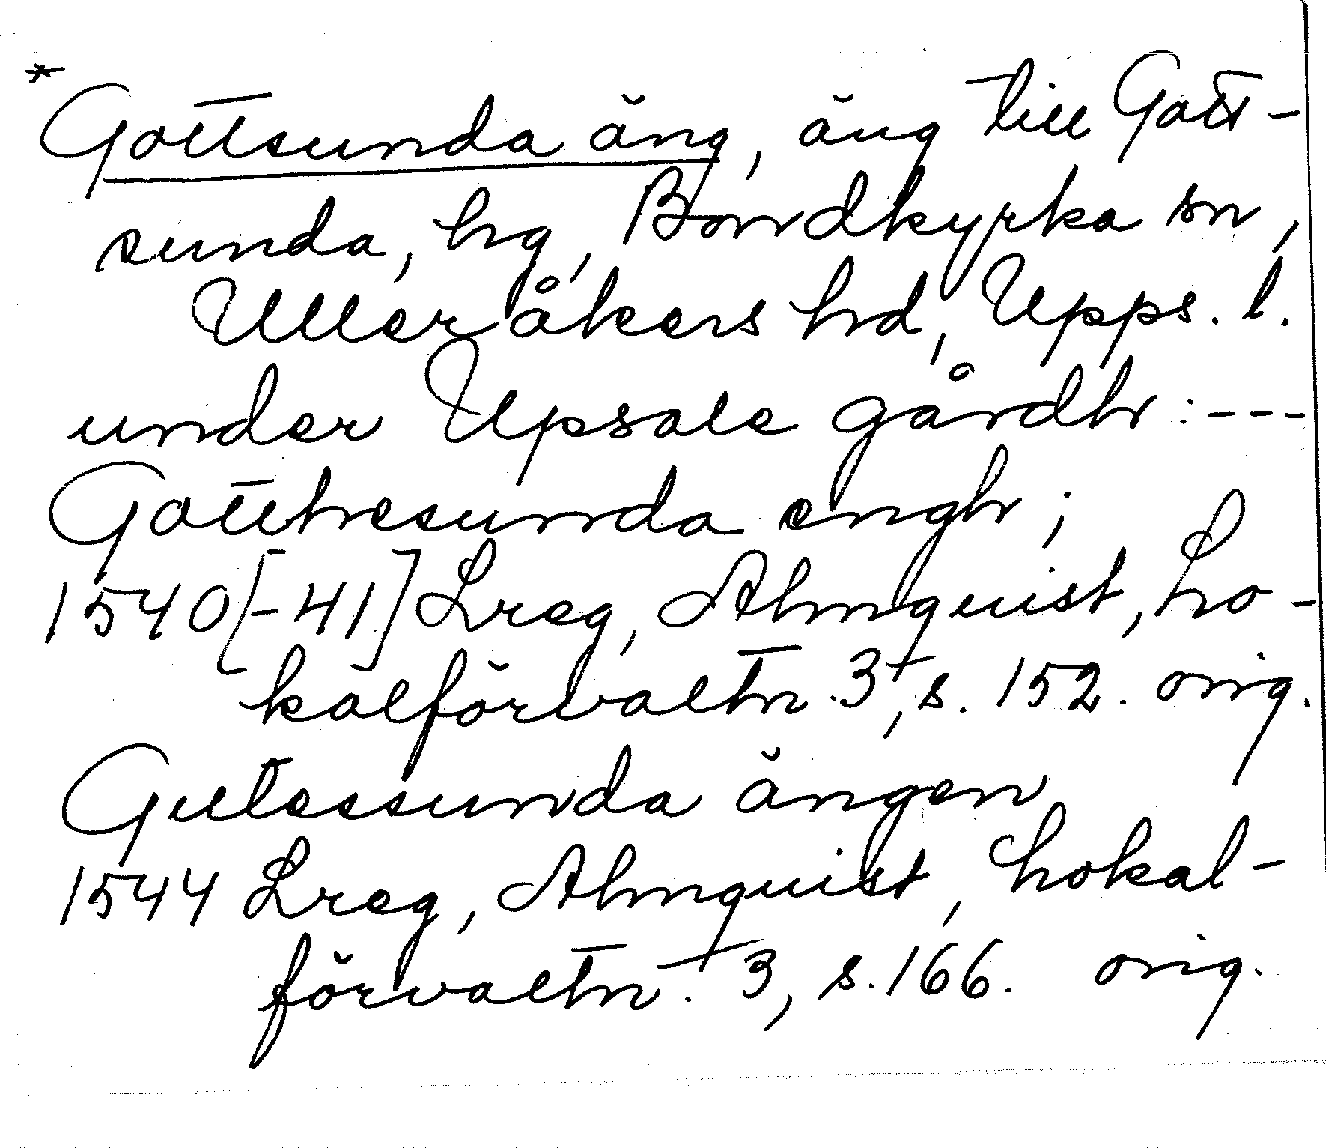 * Gottsunda äng, äng till Gott-
sunda, hg, Bondkyrka sn,
Ulleråkers hd, Upps. l.
under Upsale gårdh: ---
Gotthesunda engh;
1540[-41] Lreg, Almquist, Lo-
kalförvaltn. 3, s. 152. orig.
Gutessunda ängen
1544 Lreg, Almquist, Lokal-
förvaltn. 3, s. 166. orig.